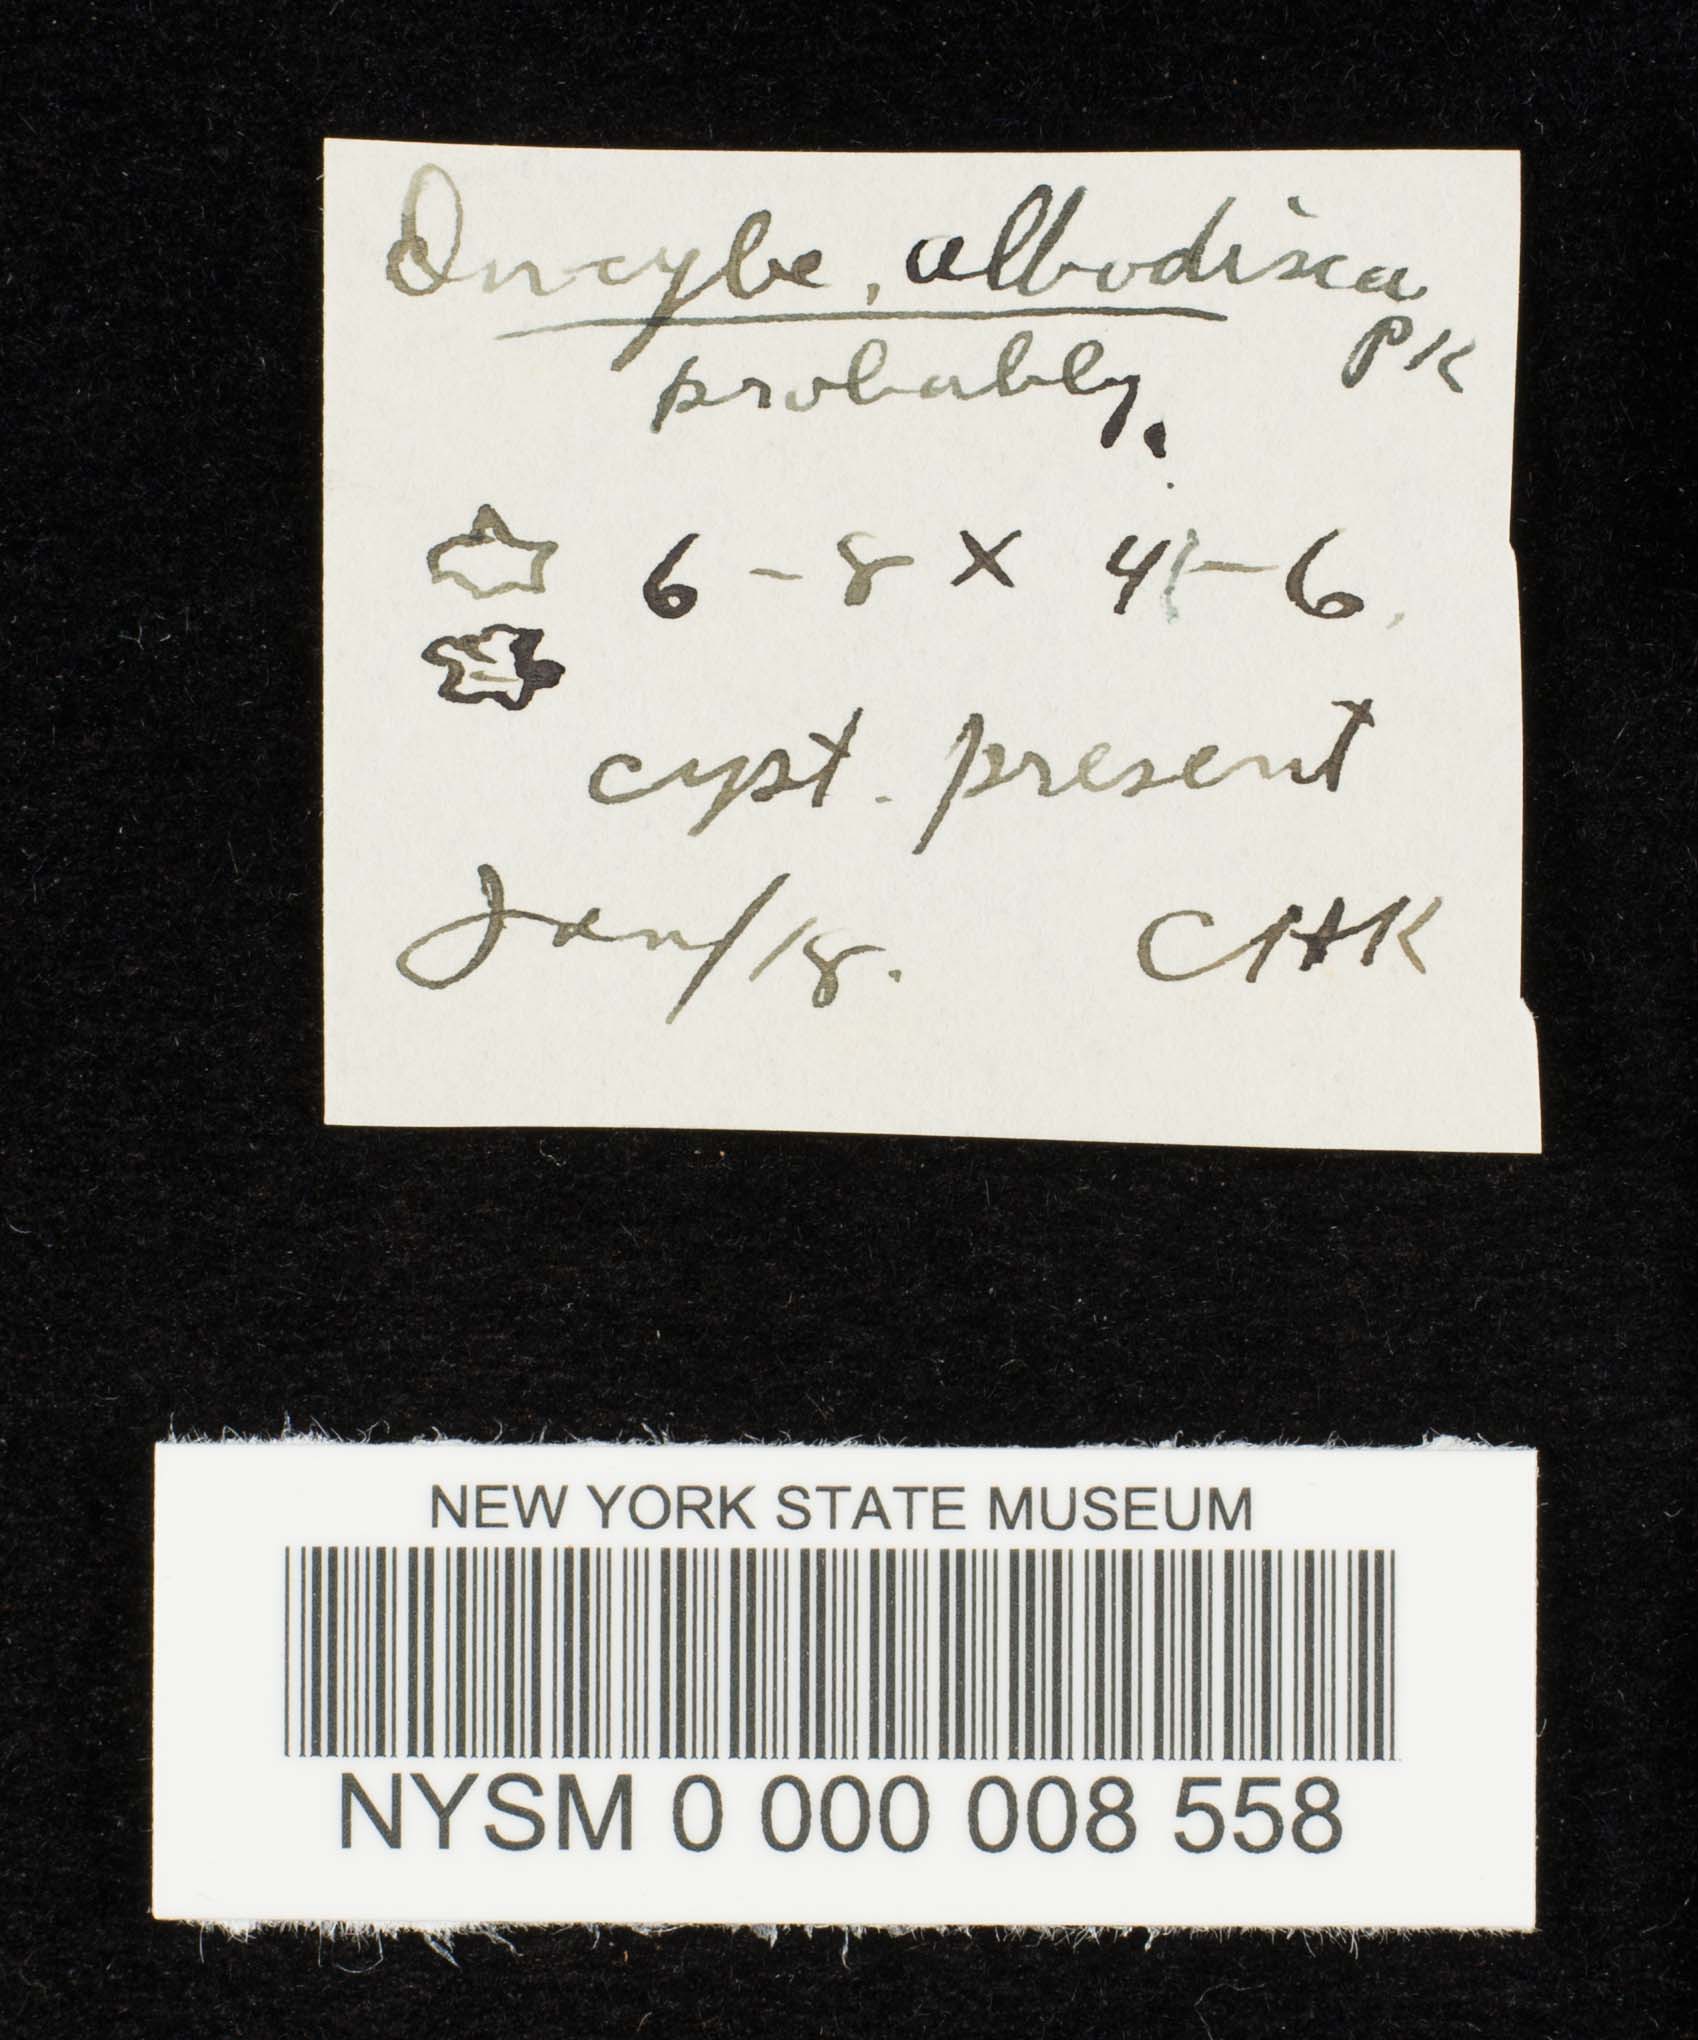 Inocybe, albodisca
PK
probably.
6-8 x 4-6.
cyst. present
Jan/18. CHK
NEW YORK STATE MUSEUM
NYSM 0 000 008 558